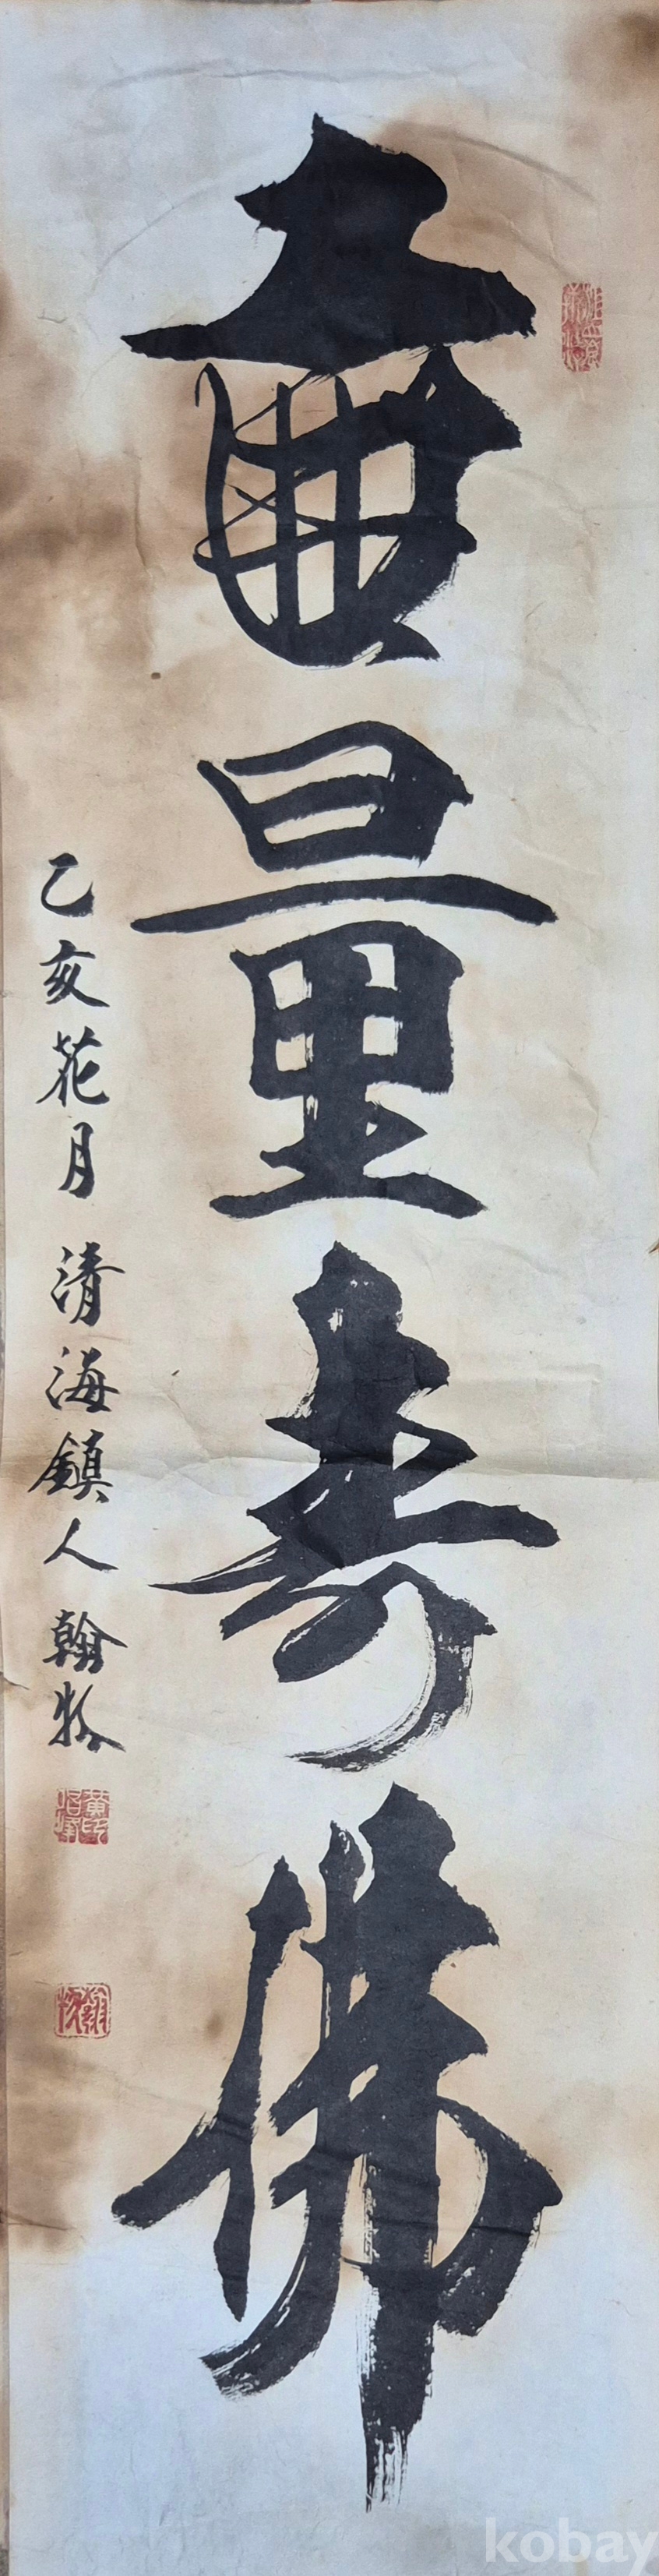 無量壽佛
乙亥花月 清海鎮人 翰牧
kobay